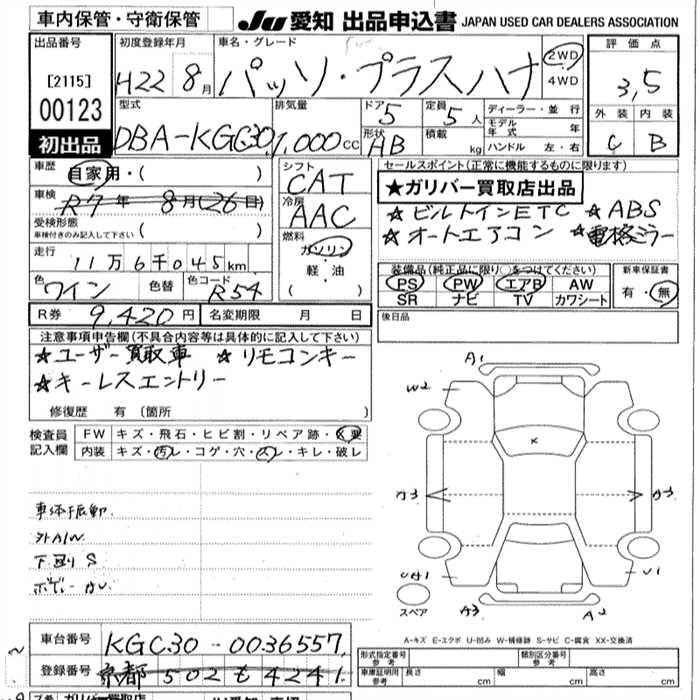 車内保管・守衛保管
JU 愛知 出品申込書 JAPAN USED CAR DEALERS ASSOCIATION
出品番号
[2115]
00123
初出品
初度登録年月
H22 8月
車名・グレード
パッソ・プラスハナ
2WD
4WD
評価点
3,5
外装 内装
C B
型式
DBA-KGC30
排気量
1,000cc
ドア 5
形状 AB
定員 5人
積載 kg
ディーラー・並行
モデル年式 年
ハンドル 左・右
車歴
自家用・( )
車検
R7年 8月(26日)
受検形態
車検付きのみ記入して下さい ( )
走行
11万6千045km
色 ワイン
色替
色コード R54
シフト
CAT
冷房
AAC
燃料
ガソリン
軽・油
( )
セールスポイント(正常に機能するものに限ります)
★ガリバー買取店出品
☆ビルトインETC ☆ABS
☆オートエアコン ☆電格ミラー
装備品(純正品に限り○をつけてください)
PS PW エアB AW
SR ナビ TV カワシート
新車保証書
有・無
R券 9,420円
名変期限 月 日
後日品
注意事項申告欄(不具合内容等は具体的に記入して下さい)
☆ユーザー買取車 ☆リモコンキー
☆キーレスエントリー
修復歴 有 (箇所 )
検査員記入欄
FW キズ・飛石・ヒビ割・リペア跡・X要
内装 キズ・汚レ・コゲ・穴・スレ・キレ・破レ
車体振動
外AW
下回りS
A1
W2
A3
A3
U1
A3
A2
スペア
A-キズ E-エクボ U-凹み W-補修跡 S-サビ C-腐食 XX-交換済
車台番号 KGC30-0036557
登録番号 京都 502 も 4241
形式指定番号 参考
類別区分番号 参考
車庫証明用 参考 長さ cm 幅 cm 高さ cm
ガリバー買取店